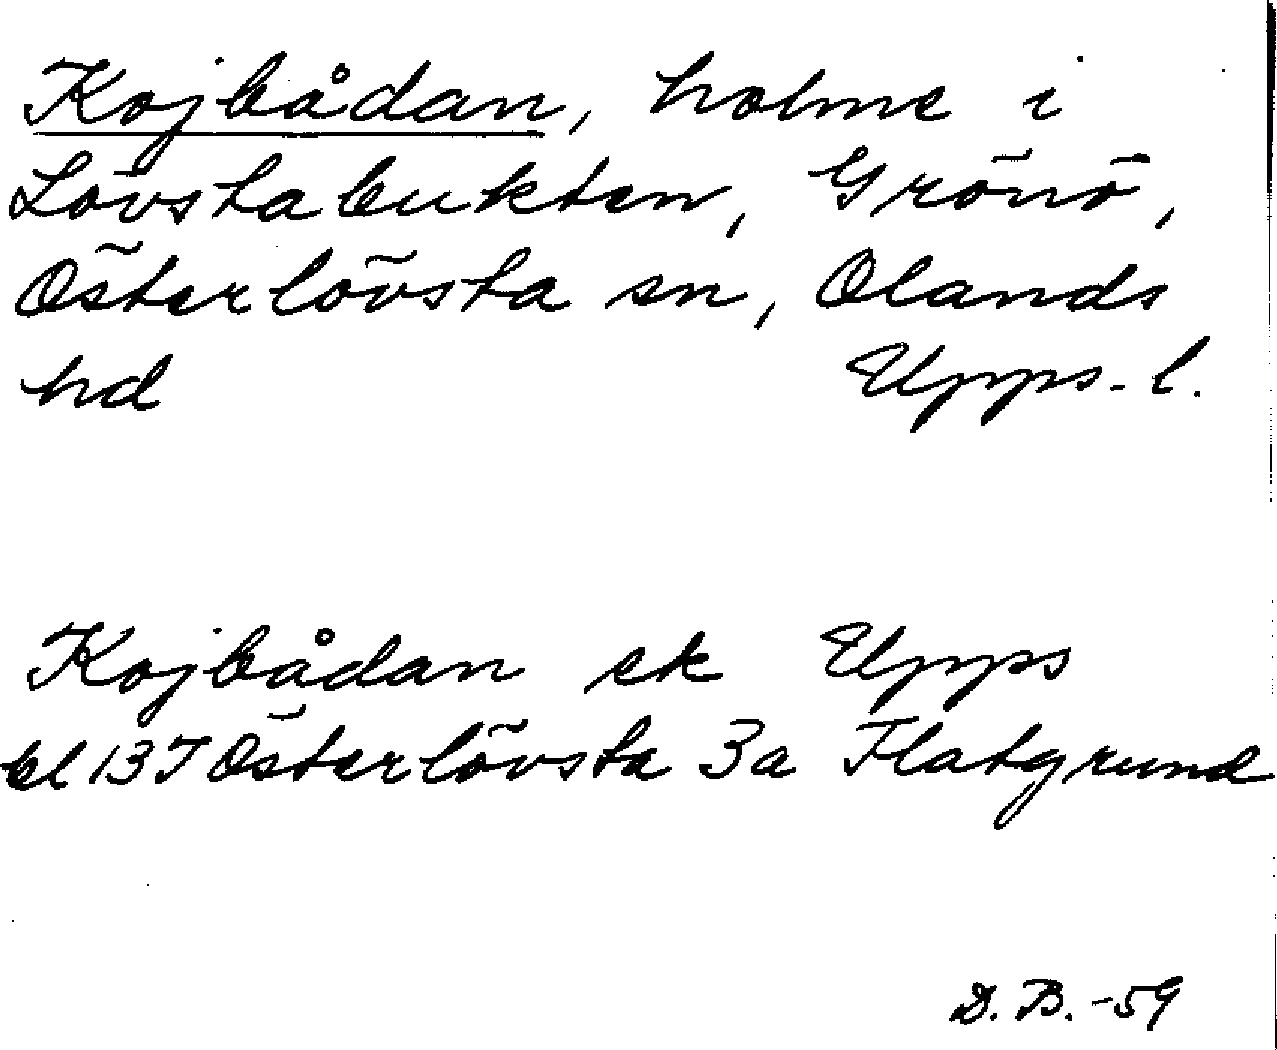 Kojbådan, holme i
Lövstabukten, Grönö,
Österlövsta sn, Olands
hd Upps. l.
Kojbådan ek Upps
bl 13J Österlövsta 3a Flatgrund
D. B. -59